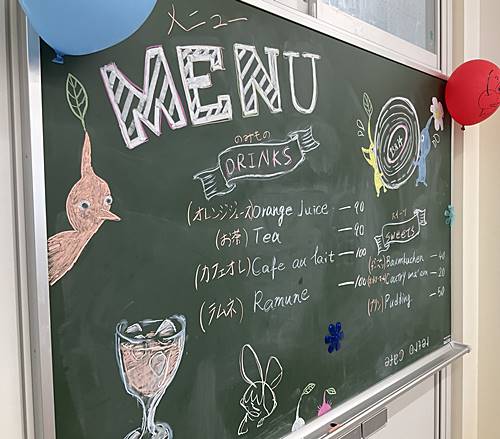 メニュー
MENU
のみもの
DRINKS
(オレンジジュース) Orange Juice — 90
(お茶) Tea — 90
(カフェオレ) Cafe au lait — 100
(ラムネ) Ramune — 100
スイーツ
SWEETS
Baumkuchen — 40
Country ma'am — 20
(プリン) Pudding — 50
retro Cafe